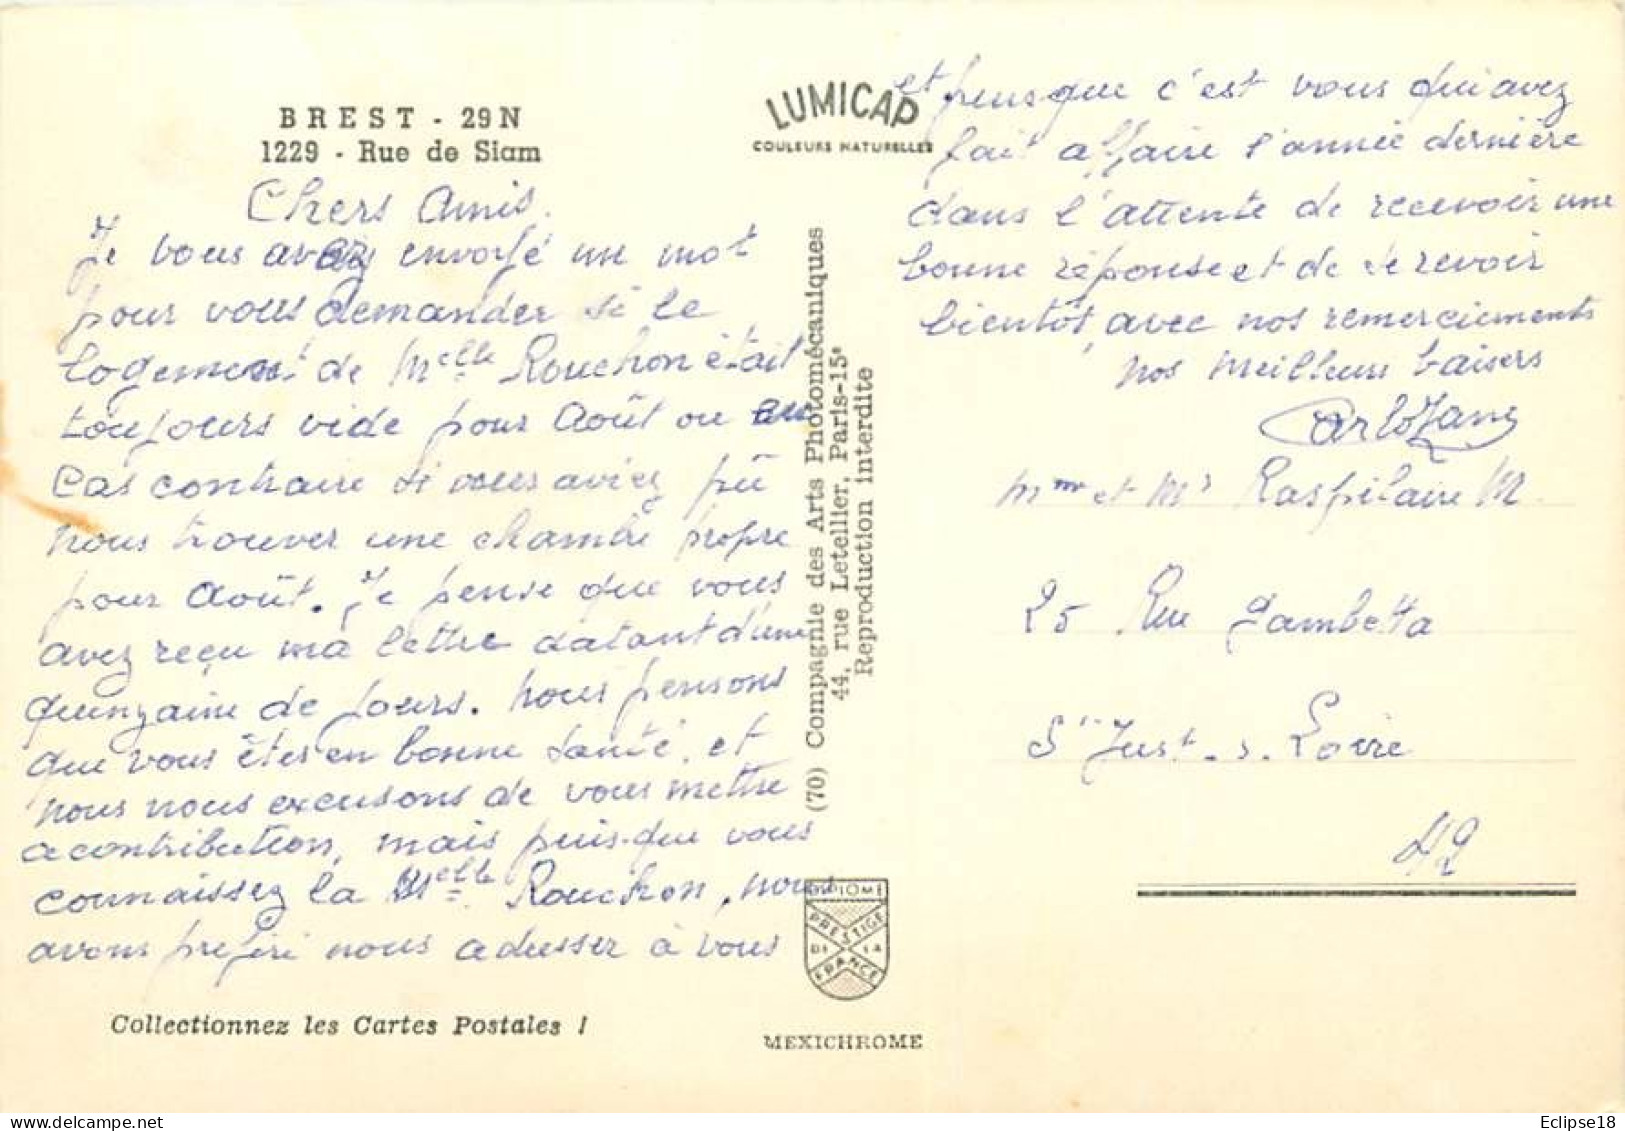 BREST - 29 N
1229 - Rue de Siam
Chers Amis.
Je vous avais envoyé un mot
pour vous demander si le
logement de Melle Rouchon était
toujours vide pour Août ou au
cas contraire si vous aviez pû
nous trouver une chambre propre
pour Août. Je pense que vous
avez reçu ma lettre datant d'une
quinzaine de jours. nous pensons
que vous êtes en bonne santé, et
nous nous excusons de vous mettre
a contribution, mais puisque vous
connaissez la Melle Rouchon, nous
avons préféré nous adresser à vous
Collectionnez les Cartes Postales !
LUMICAP
COULEURS NATURELLES
(70) Compagnie des Arts Photomécaniques
44, rue Letellier, Paris-15e
Reproduction interdite
DIPLOME
PRESTIGE
DE LA
FRANCE
MEXICHROME
et puisque c'est vous qui avez
fait affaire l'année dernière
dans l'attente de recevoir une
bonne réponse et de se revoir
bientôt, avec nos remerciements
nos meilleurs baisers
Mme et Mr Raspilaire M.
25 Rue Gambetta
St Just. s. Loire
42
Eclipse18